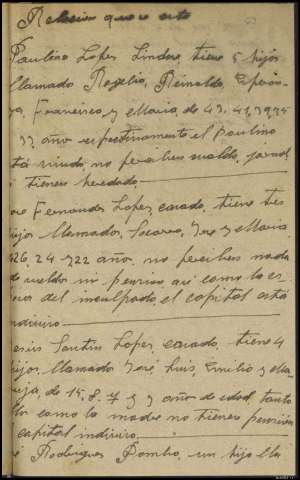 Relacion que se cita
Paulino Lopez Lindoso, tiene 5 hijos
llamado Rogelio, Reinaldo,
Francisco y Maria, de 43, 41, 39, 35
33 año respectivamente el Paulino
tá viudo, no percibe sueldo, jornal
i tienen heredado.
Fernandez Lopez, casado, tiene tres
ijos llamados, Socorro, Jose y Maria
26, 24 y 22 años, no percibes nada
de sueldo ni pension, asi como la es
del inculpado, el capital está
ndiviso
Santin Lopez, casado, tiene 4
ijos, llamado José, Luis, Emilio y Ma
de 15, 8, 7 y 3 años de edad, tanto
como la madre no tienen pensión
capital indiviso.
é Rodriguez Pombo, un hijo lla